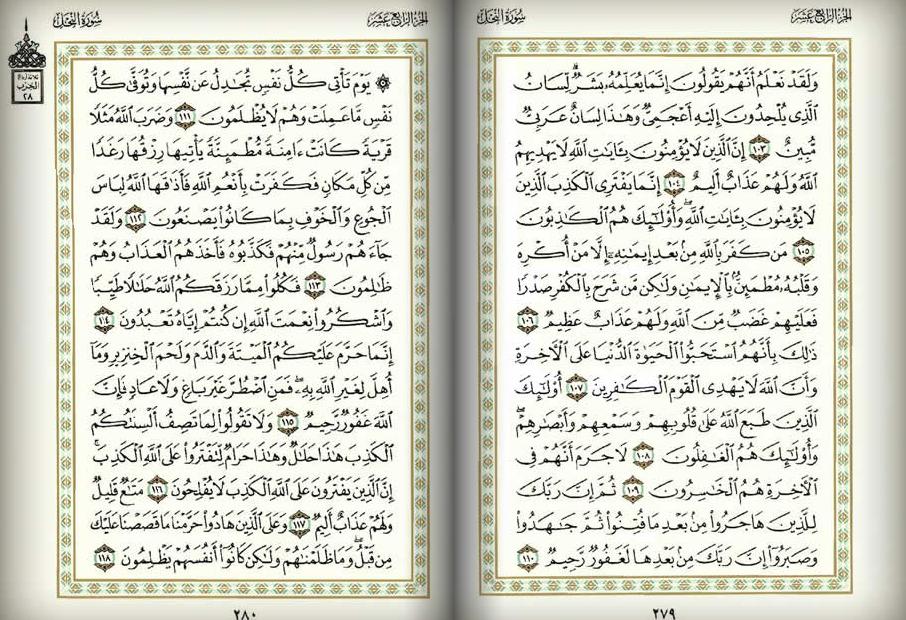 الجزء الرابع عشر
سورة النحل
وَلَقَدْ نَعْلَمُ أَنَّهُمْ يَقُولُونَ إِنَّمَا يُعَلِّمُهُ بَشَرٌ لِّسَانُ
الَّذِي يُلْحِدُونَ إِلَيْهِ أَعْجَمِيٌّ وَهَٰذَا لِسَانٌ عَرَبِيٌّ
مُّبِينٌ ١٠٣ إِنَّ الَّذِينَ لَا يُؤْمِنُونَ بِـَٔايَٰتِ اللَّهِ لَا يَهْدِيهِمُ
اللَّهُ وَلَهُمْ عَذَابٌ أَلِيمٌ ١٠٤ إِنَّمَا يَفْتَرِي الْكَذِبَ الَّذِينَ
لَا يُؤْمِنُونَ بِـَٔايَٰتِ اللَّهِ ۖ وَأُو۟لَٰٓئِكَ هُمُ الْكَٰذِبُونَ
١٠٥ مَن كَفَرَ بِاللَّهِ مِنۢ بَعْدِ إِيمَٰنِهِۦٓ إِلَّا مَنْ أُكْرِهَ
وَقَلْبُهُۥ مُطْمَئِنٌّۢ بِالْإِيمَٰنِ وَلَٰكِن مَّن شَرَحَ بِالْكُفْرِ صَدْرًا
فَعَلَيْهِمْ غَضَبٌ مِّنَ اللَّهِ وَلَهُمْ عَذَابٌ عَظِيمٌ ١٠٦
ذَٰلِكَ بِأَنَّهُمُ اسْتَحَبُّوا۟ الْحَيَوٰةَ الدُّنْيَا عَلَى الْـَٔاخِرَةِ
وَأَنَّ اللَّهَ لَا يَهْدِي الْقَوْمَ الْكَٰفِرِينَ ١٠٧ أُو۟لَٰٓئِكَ
الَّذِينَ طَبَعَ اللَّهُ عَلَىٰ قُلُوبِهِمْ وَسَمْعِهِمْ وَأَبْصَٰرِهِمْ ۖ
وَأُو۟لَٰٓئِكَ هُمُ الْغَٰفِلُونَ ١٠٨ لَا جَرَمَ أَنَّهُمْ فِي
الْـَٔاخِرَةِ هُمُ الْخَٰسِرُونَ ١٠٩ ثُمَّ إِنَّ رَبَّكَ
لِلَّذِينَ هَاجَرُوا۟ مِنۢ بَعْدِ مَا فُتِنُوا۟ ثُمَّ جَٰهَدُوا۟
وَصَبَرُوٓا۟ إِنَّ رَبَّكَ مِنۢ بَعْدِهَا لَغَفُورٌ رَّحِيمٌ ١١٠
٢٧٩
الجزء الرابع عشر
سورة النحل
ثلاثة أرباع
الحزب
٢٨
۞ يَوْمَ تَأْتِي كُلُّ نَفْسٍ تُجَٰدِلُ عَن نَّفْسِهَا وَتُوَفَّىٰ كُلُّ
نَفْسٍ مَّا عَمِلَتْ وَهُمْ لَا يُظْلَمُونَ ١١١ وَضَرَبَ اللَّهُ مَثَلًا
قَرْيَةً كَانَتْ ءَامِنَةً مُّطْمَئِنَّةً يَأْتِيهَا رِزْقُهَا رَغَدًا
مِّن كُلِّ مَكَانٍ فَكَفَرَتْ بِأَنْعُمِ اللَّهِ فَأَذَٰقَهَا اللَّهُ لِبَاسَ
الْجُوعِ وَالْخَوْفِ بِمَا كَانُوا۟ يَصْنَعُونَ ١١٢ وَلَقَدْ
جَآءَهُمْ رَسُولٌ مِّنْهُمْ فَكَذَّبُوهُ فَأَخَذَهُمُ الْعَذَابُ وَهُمْ
ظَٰلِمُونَ ١١٣ فَكُلُوا۟ مِمَّا رَزَقَكُمُ اللَّهُ حَلَٰلًا طَيِّبًا
وَاشْكُرُوا۟ نِعْمَتَ اللَّهِ إِن كُنتُمْ إِيَّاهُ تَعْبُدُونَ ١١٤
إِنَّمَا حَرَّمَ عَلَيْكُمُ الْمَيْتَةَ وَالدَّمَ وَلَحْمَ الْخِنزِيرِ وَمَآ
أُهِلَّ لِغَيْرِ اللَّهِ بِهِۦ ۖ فَمَنِ اضْطُرَّ غَيْرَ بَاغٍ وَلَا عَادٍ فَإِنَّ
اللَّهَ غَفُورٌ رَّحِيمٌ ١١٥ وَلَا تَقُولُوا۟ لِمَا تَصِفُ أَلْسِنَتُكُمُ
الْكَذِبَ هَٰذَا حَلَٰلٌ وَهَٰذَا حَرَامٌ لِّتَفْتَرُوا۟ عَلَى اللَّهِ الْكَذِبَ ۚ
إِنَّ الَّذِينَ يَفْتَرُونَ عَلَى اللَّهِ الْكَذِبَ لَا يُفْلِحُونَ ١١٦ مَتَٰعٌ قَلِيلٌ
وَلَهُمْ عَذَابٌ أَلِيمٌ ١١٧ وَعَلَى الَّذِينَ هَادُوا۟ حَرَّمْنَا مَا قَصَصْنَا عَلَيْكَ
مِن قَبْلُ ۖ وَمَا ظَلَمْنَٰهُمْ وَلَٰكِن كَانُوٓا۟ أَنفُسَهُمْ يَظْلِمُونَ ١١٨
٢٨٠